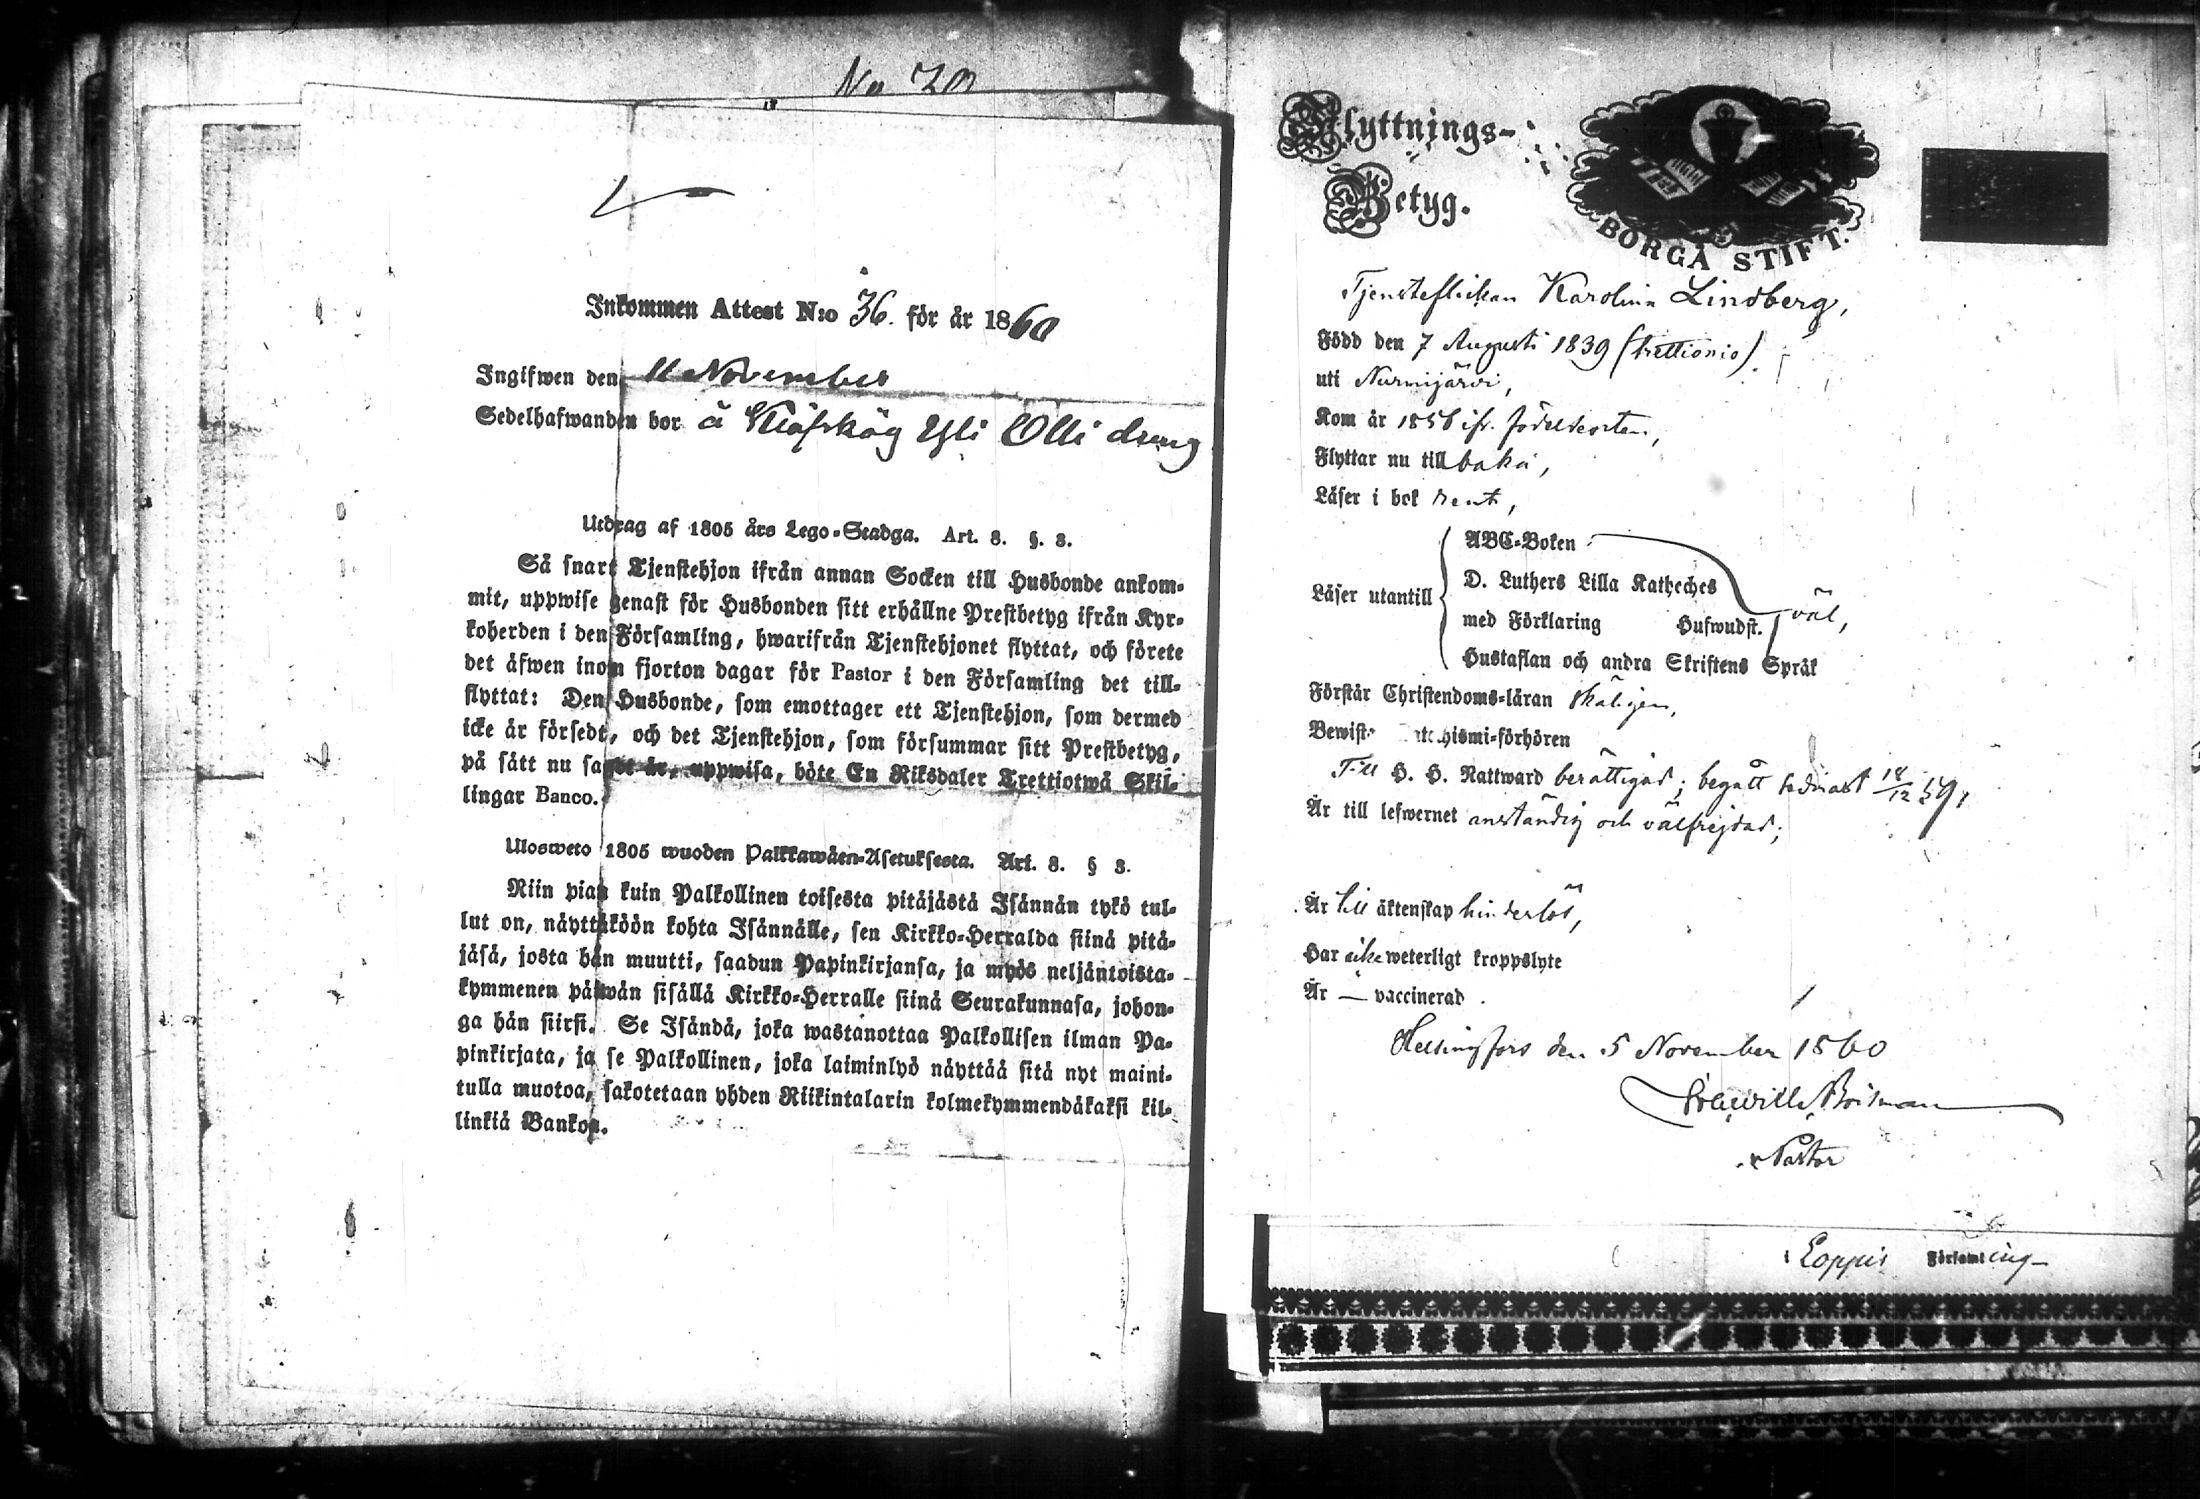 No 70
Inkommen Attest N:o 36. för år 1860
Ingifwen den 11 November
Sedelhafwanden bor å Klöfskög Yli Olli dreng
Utdrag af 1805 års Lego-Stadga. Art. 8. §. 3.
Så snart Tjenstehjon ifrån annan Socken till Husbonde ankom-
mit, uppwise genast för Husbonden sitt erhållne Prestbetyg ifrån Kyr-
koherden i den Församling, hwarifrån Tjenstehjonet flyttat, och förete
det äfwen inom fjorton dagar för Pastor i den Församling det till-
flyttat: Den Husbonde, som emottager ett Tjenstehjon, som dermed
icke är försedt, och det Tjenstehjon, som försummar sitt Prestbetyg,
på sätt nu sagdt är, uppwisa, böte En Riksdaler Trettiotwå Skil-
lingar Banco.
Ulosweto 1805 wuoden Palkkawäen-Asetuksesta. Art. 8. § 3.
Niin pian kuin Palkollinen toisesta pitäjästä Isännän tykö tul-
lut on, näyttäköön kohta Isännälle, sen Kirkko-Herralda siinä pitä-
jäsä, josta hän muutti, saadun Papinkirjansa, ja myös neljäntoista-
kymmenen päiwän sisällä Kirkko-Herralle siinä Seurakunnasa, johon-
ga hän siirsi. Se Isändä, joka wastanottaa Palkollisen ilman Pa-
pinkirjata, ja se Palkollinen, joka laiminlyö näyttää sitä nyt maini-
tulla muotoa, sakotetaan yhden Riikintalarin kolmekymmendäkaksi kil-
linkiä Bankoa.
Flyttnings-
Betyg.
BORGÅ STIFT.
Tjensteflickan Karolina Lindberg,
Född den 7 Augusti 1839 (trettionio).
uti Nurmijärvi,
Kom år 1856 ifr. födelseorten,
Flyttar nu till baka,
Läser i bok rent,
Läser utantill
ABC-Boken
D. Luthers Lilla Katheches
med Förklaring Hufwudst.
Hustaflan och andra Skriftens Språk
väl,
Förstår Christendoms-läran skäligen,
Bewist Katechismi-förhören
Till H. H. Nattward berättigad; begått sednast 18/12 59,
Är till lefwernet anständig och välfrejdad;
Är till äktenskap hinderlös,
Har icke weterligt kroppslyte
Är — vaccinerad.
Helsingfors den 5 November 1860
Boisman
v Pastor
i Loppis Församling